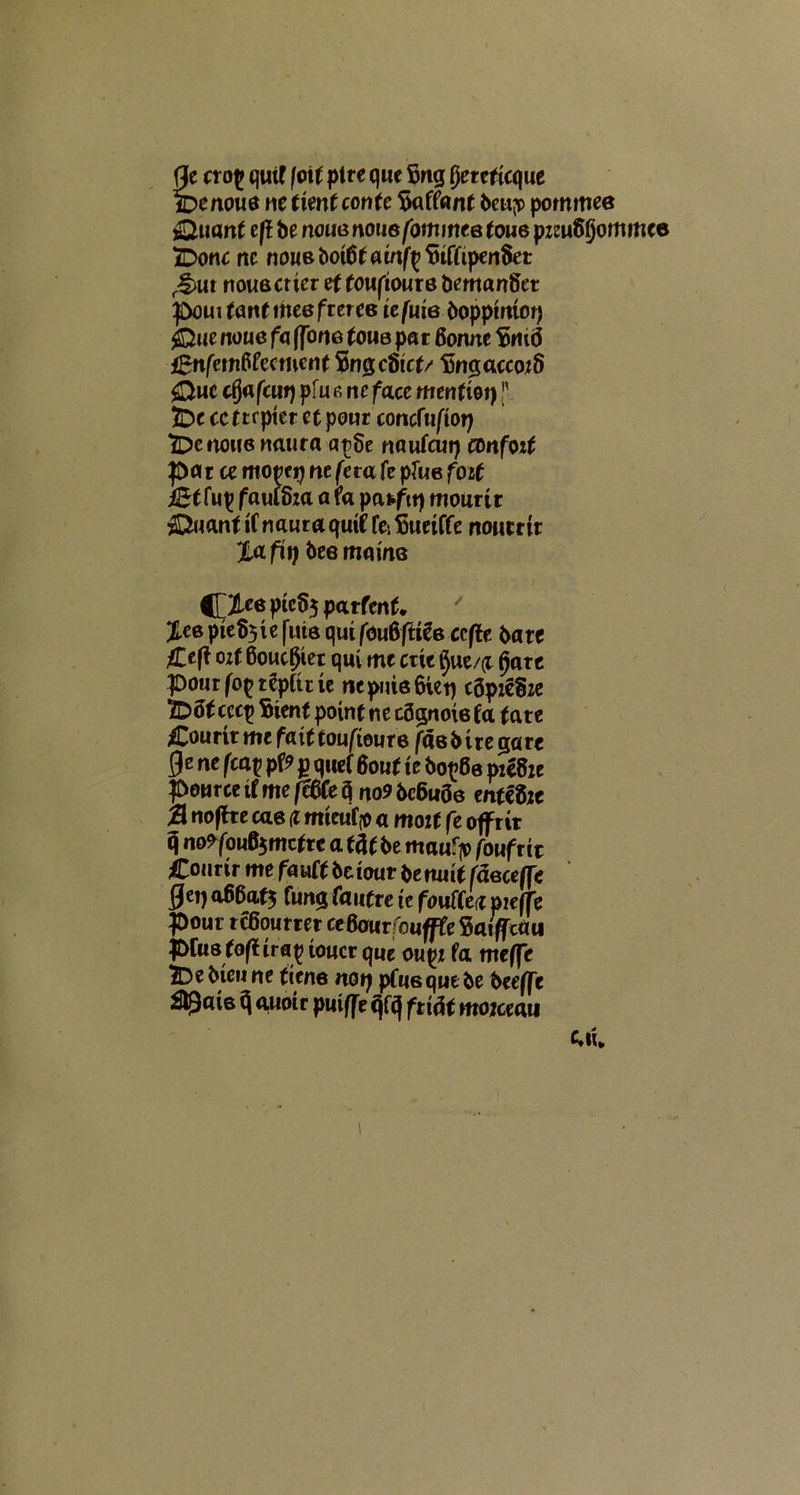 Je croy quil soit pire que vng hereticque
De nous ne tient conte vallant deux pommes
Quant est de nous nous sommes tous preudhommes
Donc ne nous doibt ainsy villipender
Sur nous crier et tousiours demander
Pour tant mes freres ie suis doppinion
Que nous fassons tous par bonne vniõ
Ensemblement vng edict/ vng accord
Que chascun plus ne face mention
De ce trepier et pour conclusion
De nous naura ayde naulcun confort
Par ce moyen ne sera le plus fort
Et luy fauldra a la parfin mourir
Quant il naura quil le vueille nourrir
La fin des mains
Les piedz parlent.
Les piedz ie suis qui soubstiẽs ceste dare
Cest ort bouchier qui me crie hue/& hare
Pour soy rẽplir ie ne puis bien cõprẽdre
Dõt cecy vient point ne cõgnois la tare
Courir me fait tousiours sãs dire gare
Je ne scay plꝰ p quel bout ie doybs prẽdre
Pource il me sẽble q̃ noꝰ debuõs entẽdre
A nostre cas & mieulx a mort se offrir
q̃ noꝰ soubzmettre a tãt de maulx soufrir
Courir me fault de iour de nuit sãs cesse
Jen abbatz lung laultre ie soulle & presse
Pour rẽbourrer ce boursouffle vaisseau
Plus tost iray iouer que ouyr la messe
De dieu ne tiens non plus que de beesse
Mais q̃ auoir puisse qlq̃ friãt morceau
c.ii.